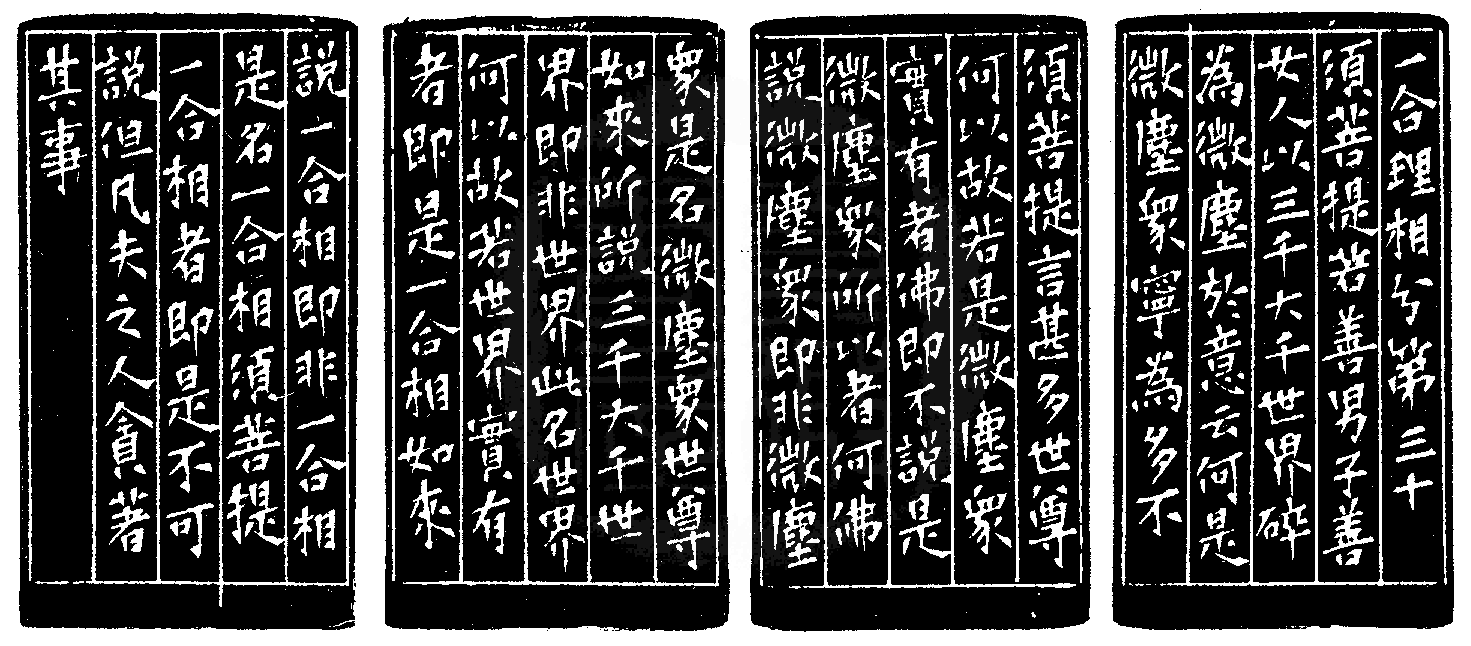 一合理相分第三十
須菩提若善男子善
女人以三千大千世界碎
為微塵於意云何是
微塵衆寧為多不
須菩提言甚多世尊
何以故若是微塵衆
實有者佛即不說是
微塵衆所以者何佛
說微塵衆即非微塵
衆是名微塵衆世尊
如來所說三千大千世
界即非世界此名世界
何以故若世界實有
者即是一合相如來
說一合相即非一合相
是名一合相須菩提
一合相者即是不可
說但凡夫之人貪著
其事